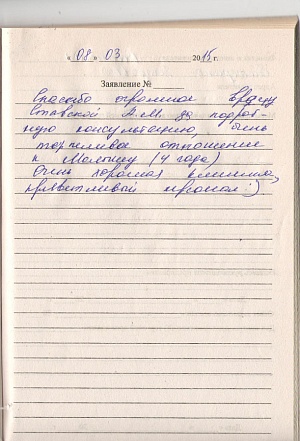 « 08 » 03 2015 г.
Заявление №
Спасибо огромное врачу
Ставской А.М. за подроб-
ную консультацию, очень
терпеливое отношение
к Малышу (4 года)
Очень хорошая клиника,
приветливый персонал :).